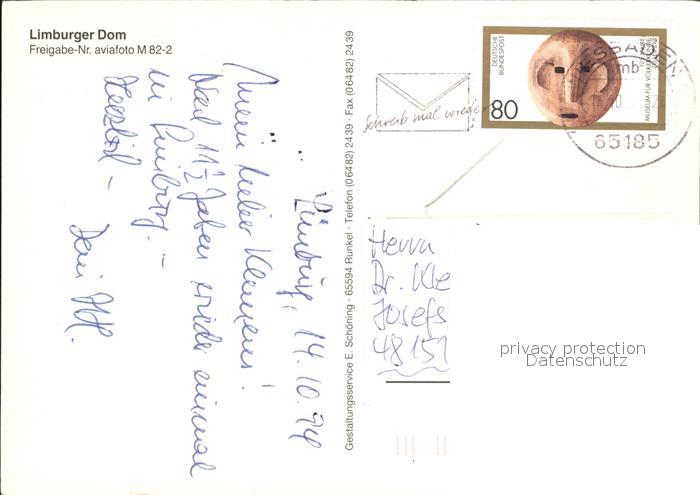 Limburger Dom
Freigabe-Nr. aviafoto M 82-2
Limburg, 14.10.94
Mein lieber Klemens!
Nach 11 1/2 Jahren wieder einmal
in Limburg. –
Herzlich –
Dein
Gestaltungsservice E. Schöning · 65594 Runkel · Telefon (0 64 82) 24 39 · Fax (0 64 82) 24 39
Schreib mal wieder
DEUTSCHE
BUNDESPOST
80
MUSEUM FÜR VÖLKERKUNDE
65185
Herrn
Dr. Kle
Josefs
48151
privacy protection
Datenschutz